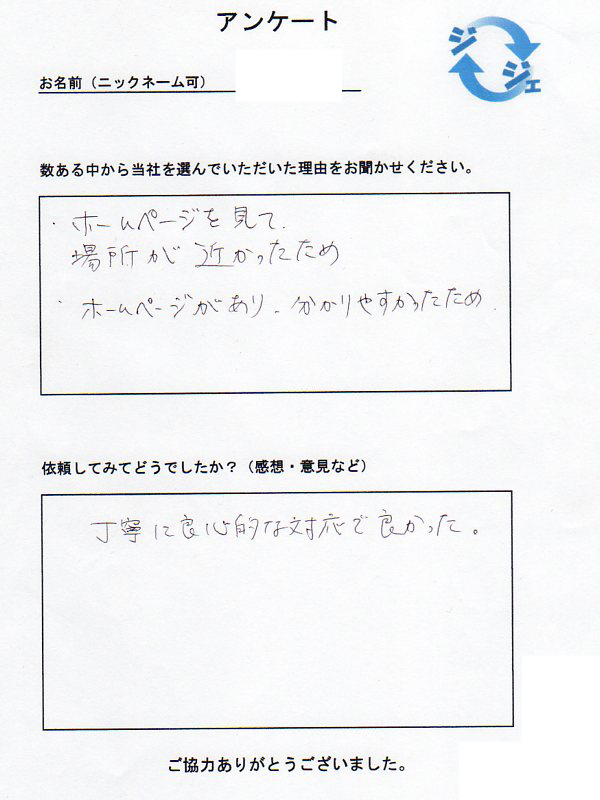 アンケート
ジ
ジェ
お名前（ニックネーム可）
数ある中から当社を選んでいただいた理由をお聞かせください。
・ホームページを見て.
場所が近かったため
・ホームページがあり、分かりやすかったため.
依頼してみてどうでしたか？（感想・意見など）
丁寧に良心的な対応で良かった。
ご協力ありがとうございました。